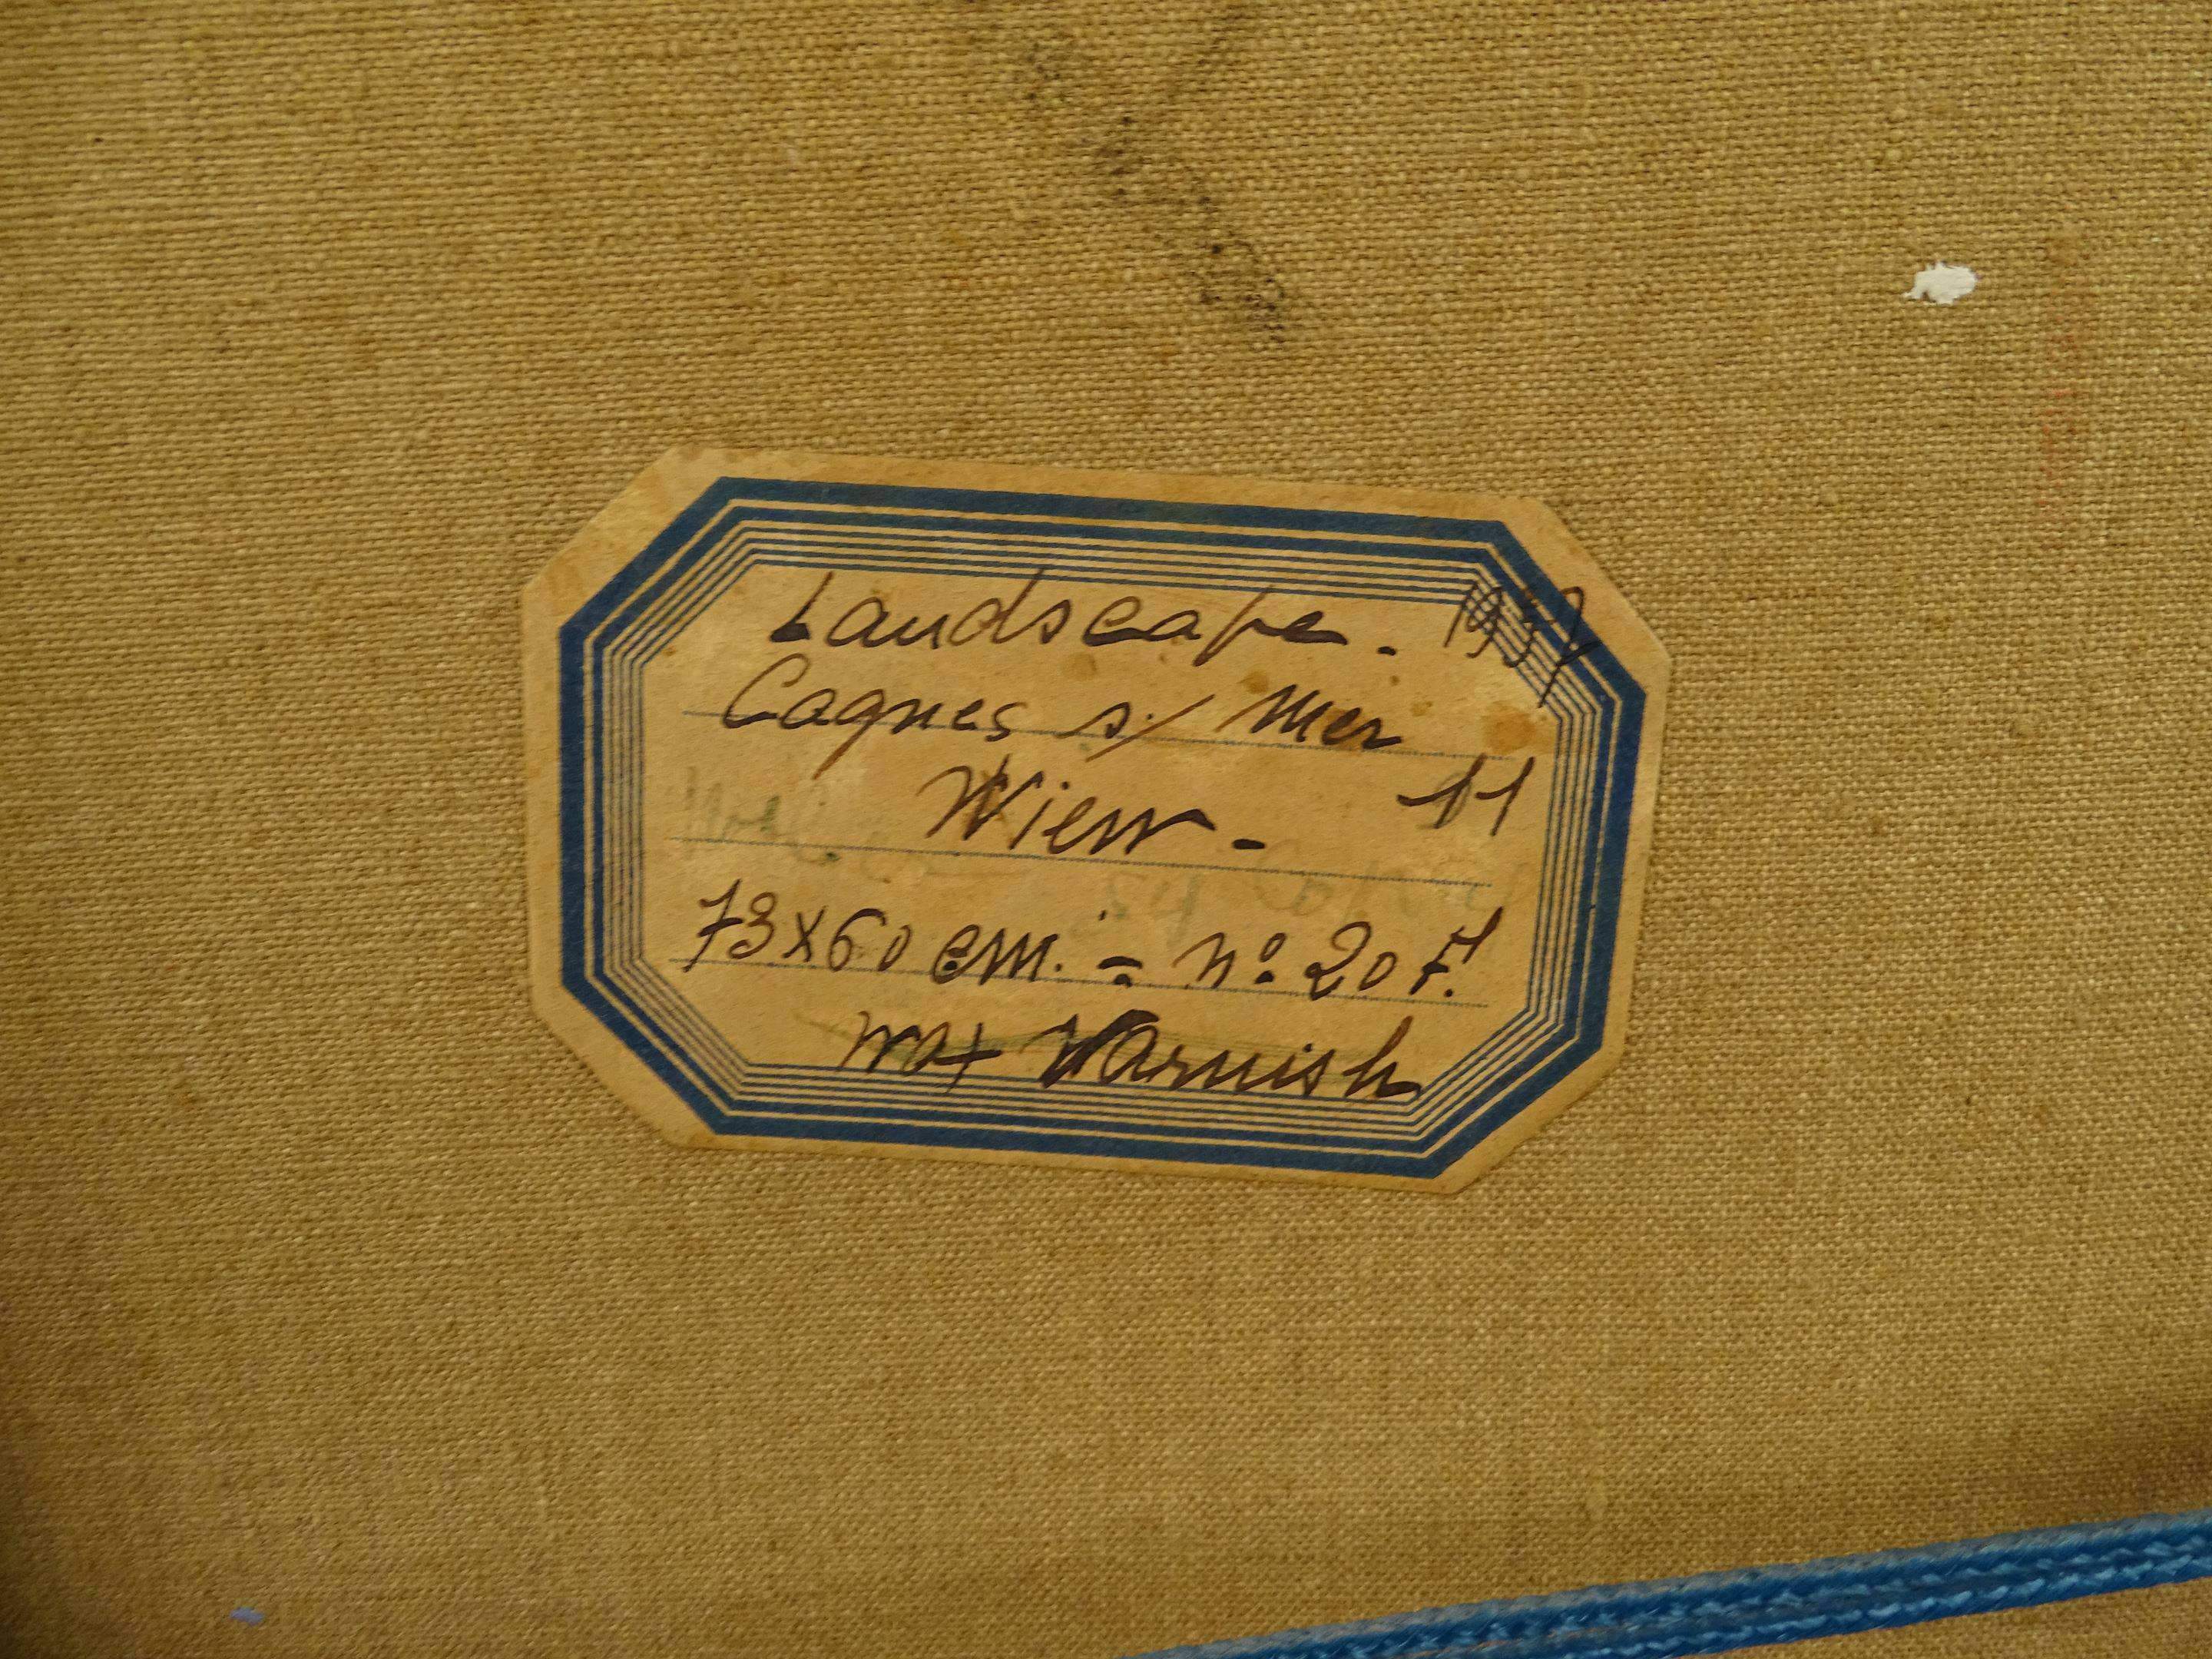 Landscape. 1957
Cagnes s/ Mer
Wiew - 11
73x60 cm. = nº 20 F.
wax Varnish